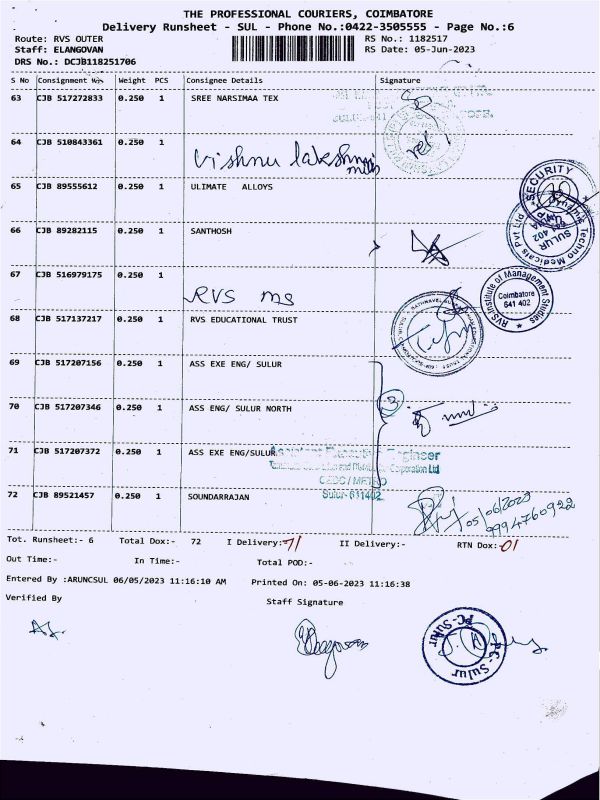 THE PROFESSIONAL COURIERS, COIMBATORE
Delivery Runsheet - SUL - Phone No.:0422-3505555 - Page No.:6
Route: RVS OUTER RS No.: 1182517
Staff: ELANGOVAN RS Date: 05-Jun-2023
DRS No.: DCJB118251706
S No Consignment No Weight PCS Consignee Details Signature
63 CJB 517272833 0.250 1 SREE NARSIMAA TEX
64 CJB 510843361 0.250 1 Vishnu lakshmi mills
65 CJB 89555612 0.250 1 ULIMATE ALLOYS
SECURITY
Techno Medicals Pvt Ltd
SULUR
402
66 CJB 89282115 0.250 1 SANTHOSH
67 CJB 516979175 0.250 1 RVS ms
RVS Institute of Management Studies
Coimbatore
641 402
68 CJB 517137217 0.250 1 RVS EDUCATIONAL TRUST
69 CJB 517207156 0.250 1 ASS EXE ENG/ SULUR
70 CJB 517207346 0.250 1 ASS ENG/ SULUR NORTH
3
71 CJB 517207372 0.250 1 ASS EXE ENG/SULUR
Assistant Executive Engineer
Corporation Ltd
CEDC / METRO
Sulur-641402
72 CJB 89521457 0.250 1 SOUNDARRAJAN
05/06/2023
9994760922
Tot. Runsheet:- 6 Total Dox:- 72 I Delivery:- 71 II Delivery:- RTN Dox:- 01
Out Time:- In Time:- Total POD:-
Entered By :ARUNCSUL 06/05/2023 11:16:10 AM Printed On: 05-06-2023 11:16:38
Verified By Staff Signature
Elangovan
PC-Sulur
PC-Sulur